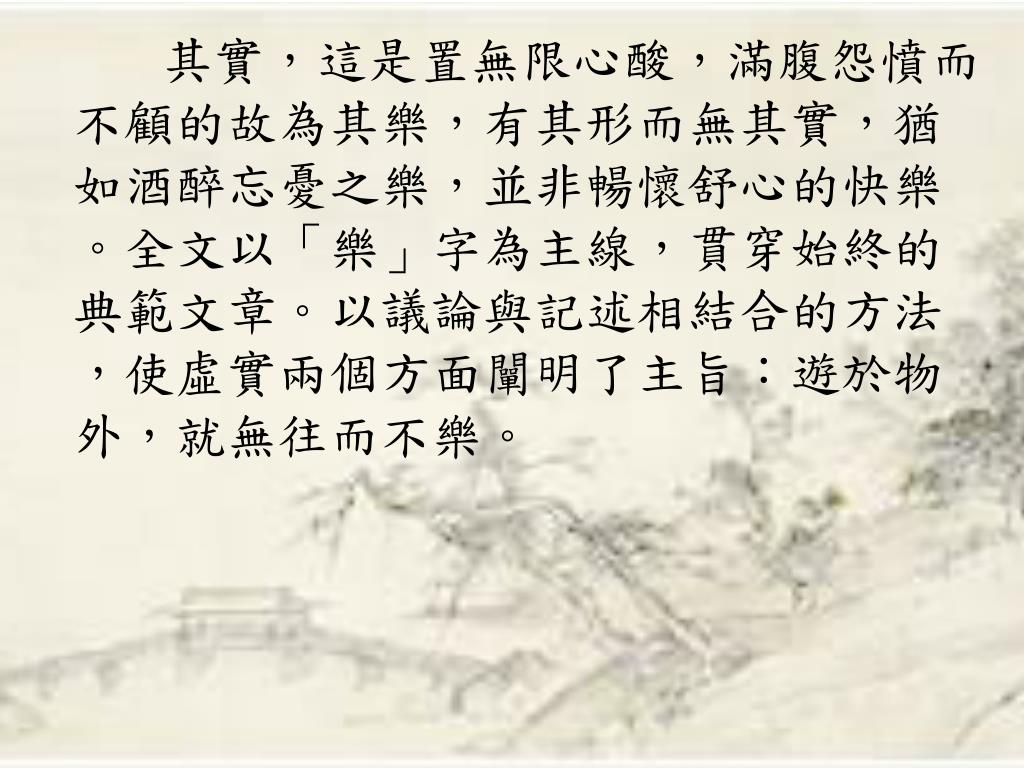 其實，這是置無限心酸，滿腹怨憤而
不顧的故為其樂，有其形而無其實，猶
如酒醉忘憂之樂，並非暢懷舒心的快樂
。全文以「樂」字為主線，貫穿始終的
典範文章。以議論與記述相結合的方法
，使虛實兩個方面闡明了主旨：遊於物
外，就無往而不樂。